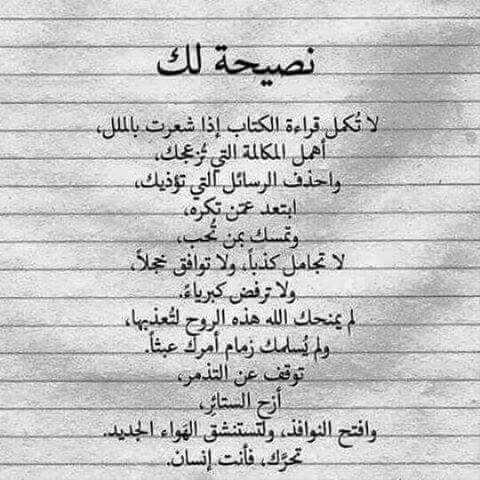 نصيحة لك
لا تُكمل قراءة الكتاب إذا شعرت بالملل،
أهمل المكالمة التي تُزعجك،
واحذف الرسائل التي تؤذيك،
ابتعد عمّن تكره،
وتمسك بمن تُحب،
لا تجامل كذباً، ولا توافق خجلاً،
ولا ترفض كبرياءً.
لم يمنحك الله هذه الروح لتُعذبها،
ولم يُسلمك زمام أمرك عبثاً.
توقف عن التذمر،
أزح الستائِر،
وافتح النوافذ، ولتستنشق الهَواء الجديد.
تحرَّك، فأنت إنسان.